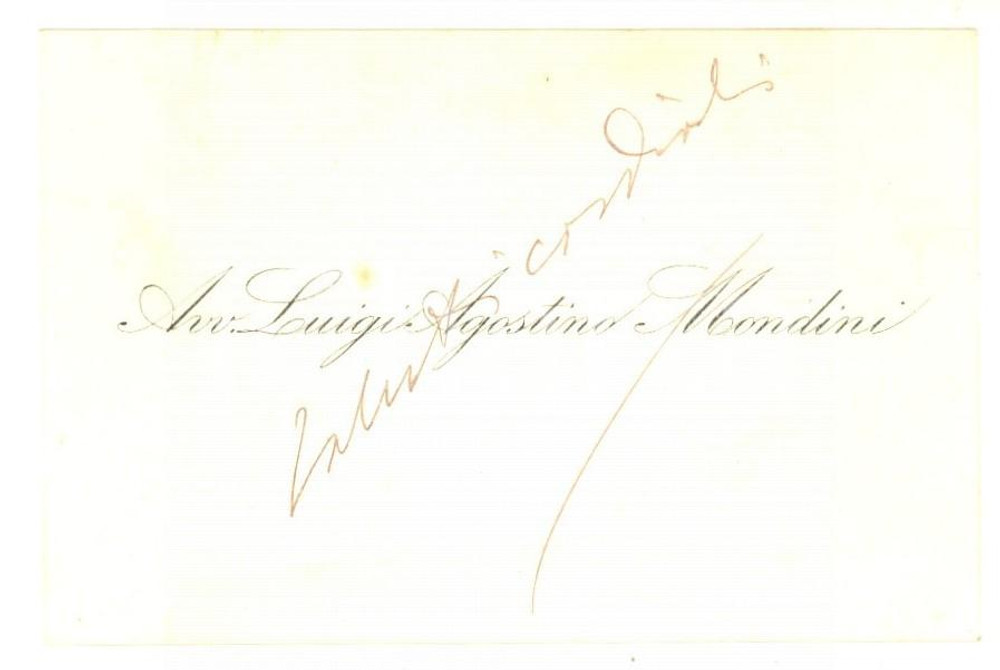 Avv. Luigi Agostino Mondini
saluti cordiali